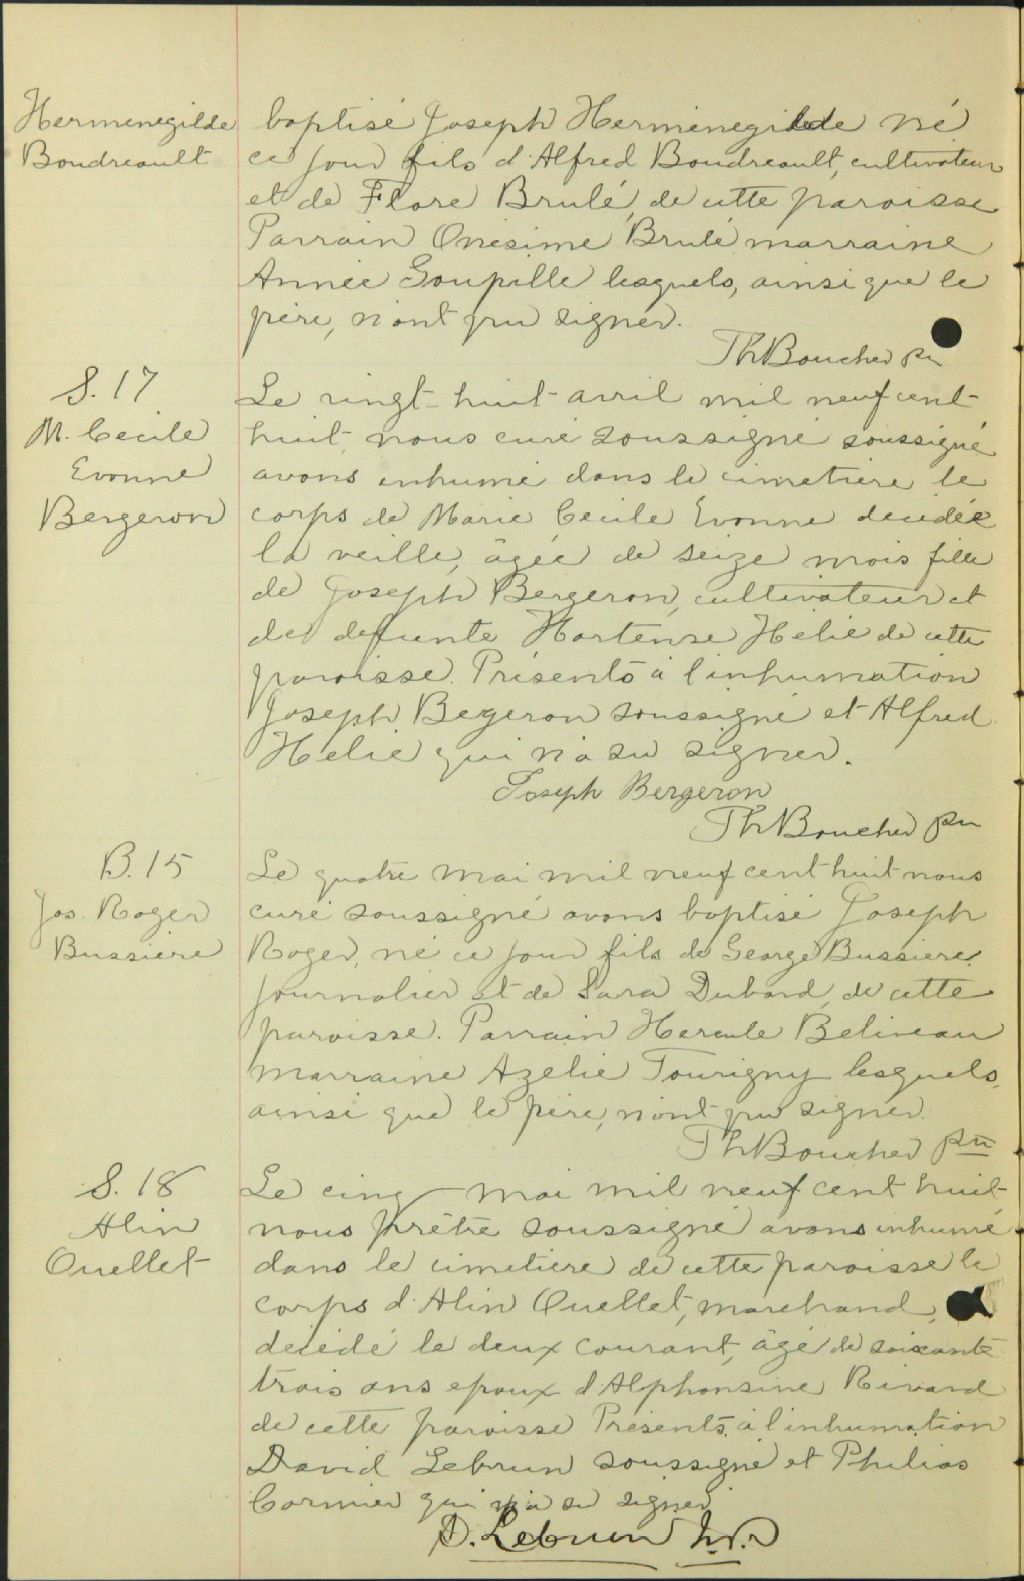 Hermenegilde
Boudreault
baptisé Joseph Hermenegilde né
ce jour fils d'Alfred Boudreault, cultivateur
et de Flore Brulé, de cette paroisse
Parrain Onesime Brulé marraine
Annee Goupille lesquels, ainsi que le
père, n'ont pu signer.
Th Boucher ptre
S. 17
M. Cecile
Evonne
Bergeron
Le vingt-huit avril mil neuf cent
huit, nous curé soussigné soussigné
avons inhumé dans le cimetière le
corps de Marie Cecile Evonne décidée
la veille, âgée de seize mois fille
de Joseph Bergeron, cultivateur et
de defunte Hortense Helie de cette
paroisse. Présents à l'inhumation
Joseph Begeron soussigné et Alfred
Helie qui n'a su signer.
Joseph Bergeron
Th Boucher ptre
B. 15
Jos. Roger
Bussiere
Le quatre mai mil neuf cent huit nous
curé soussigné avons baptisé Joseph
Roger, né ce jour fils de George Bussiere
journalier et de Sara Dubord, de cette
paroisse. Parrain Hercule Beliveau
marraine Azelie Tourigny lesquels,
ainsi que le père, n'ont pu signer.
Th Boucher ptre
S. 18
Alin
Ouellet
Le cinq mai mil neuf cent huit
nous prêtre soussigné avons inhumé
dans le cimetiere de cette paroisse le
corps d'Alin Ouellet, marchand,
décédé le deux courant, âgé de soixante
trois ans epoux d'Alphonsine Rivard
de cette paroisse Présents à l'inhumation
David Lebrun soussigné et Philias
Cormier qui n'a su signer
D. Lebrun